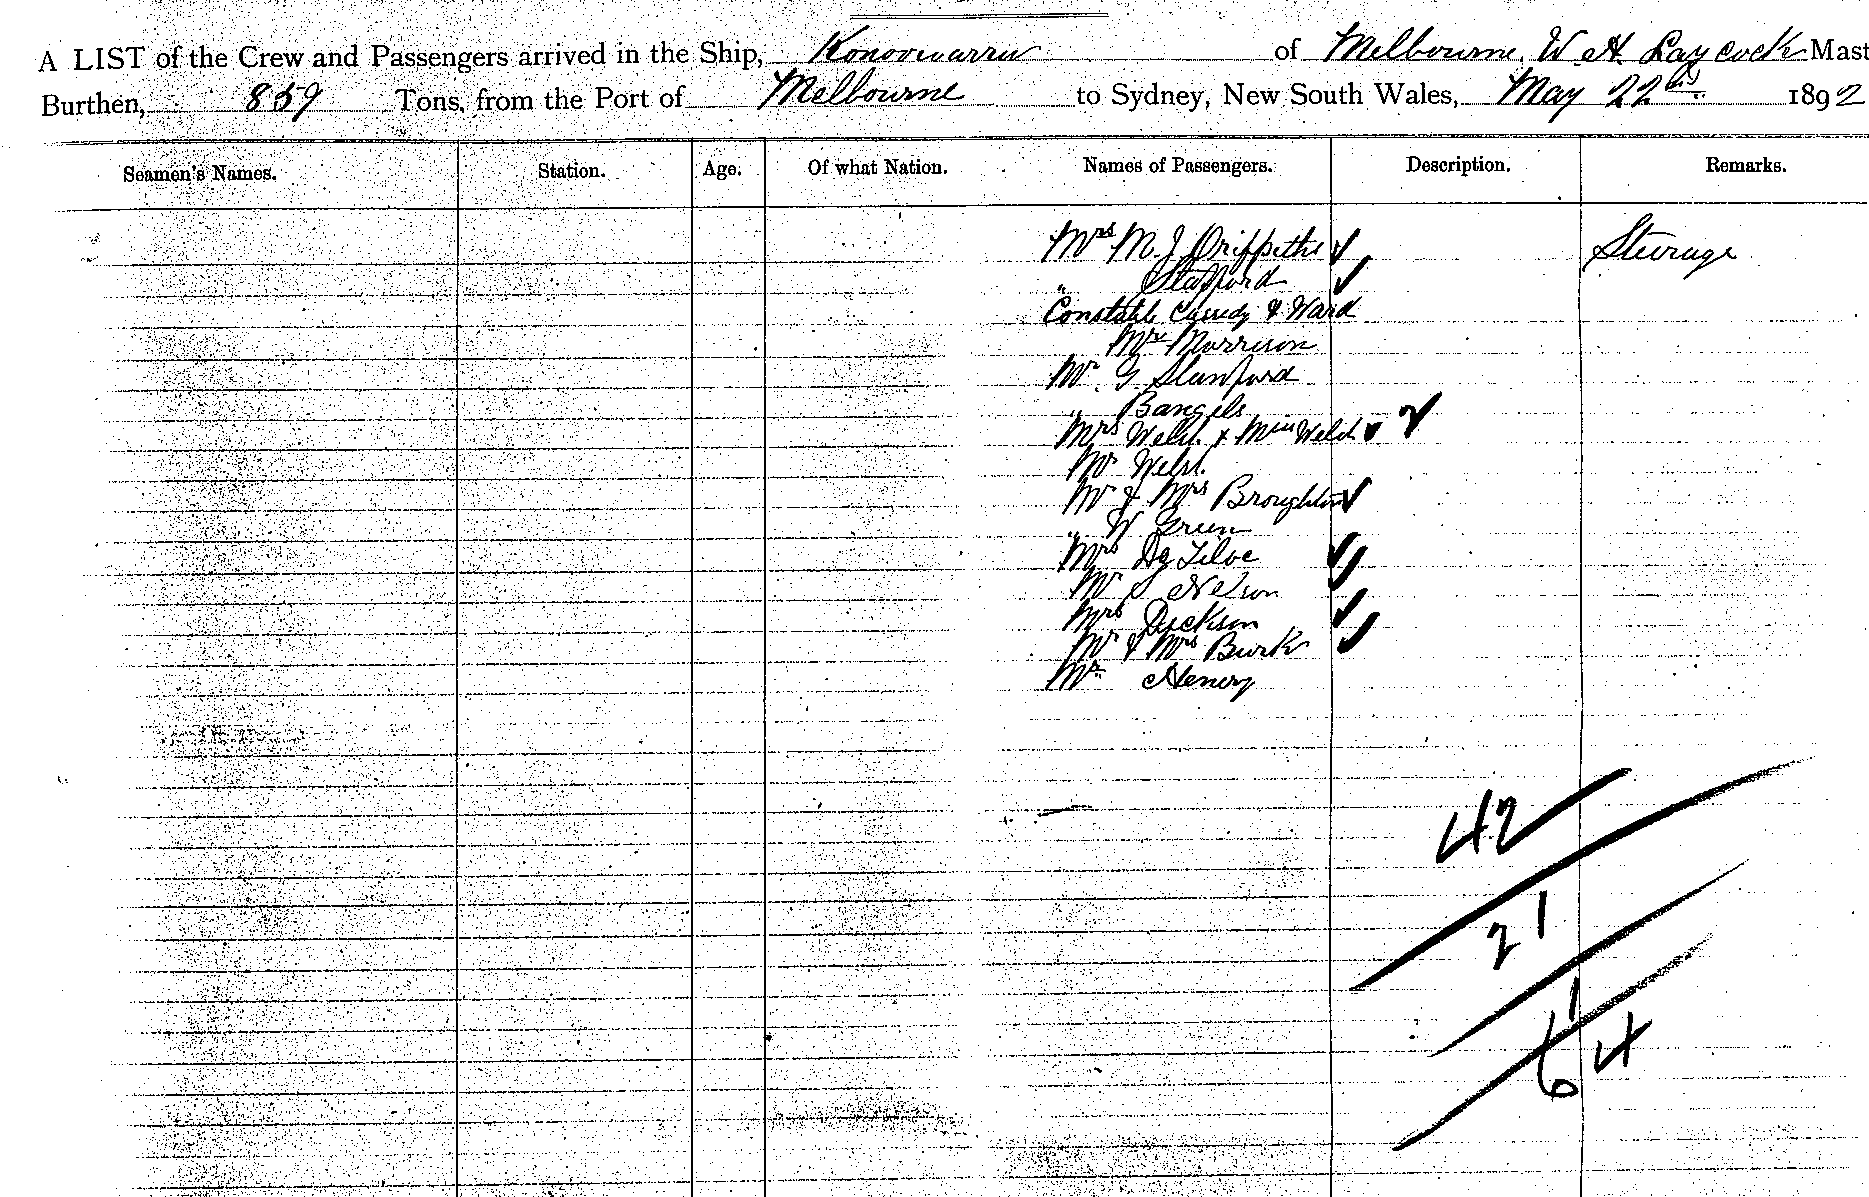 A LIST of the Crew and Passengers arrived in the Ship, Konoowarra of Melbourne, W. H. Laycock Mast
Burthen, 859 Tons, from the Port of Melbourne to Sydney, New South Wales, May 22nd 1892
Seamen's Names. Station. Age. Of what Nation. Names of Passengers. Description. Remarks.
Mrs M. J Griffiths Steerage
" Stafford
Constable Cassedy & Ward
Mrs Morrison
Mr. G. Stanford
" Bangels
Mrs Welsh & Miss Welch
Mr Welsh
Mr & Mrs Broughton
" W Green
Mrs
Mr S Nelson
Mrs Dickson
Mr & Mrs Burk
Mr Henery
42
21
1
64